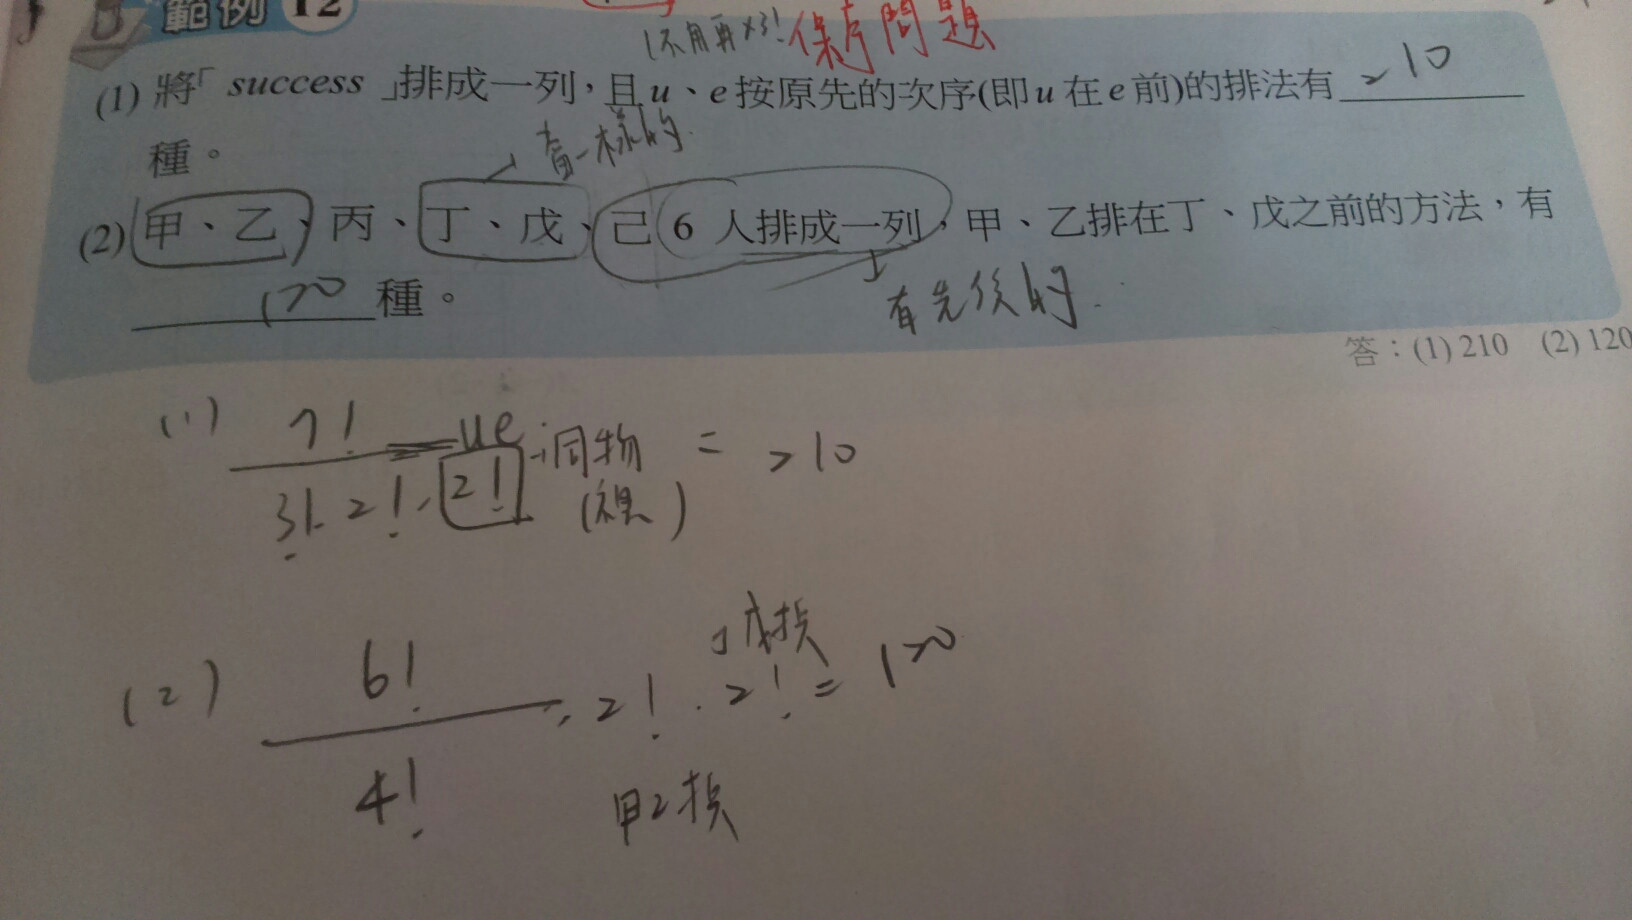 範例 12
(不用再×3!) 保序問題
(1) 將「success」排成一列，且u、e按原先的次序(即u在e前)的排法有 210
種。
看一樣的
(2) 甲、乙、丙、丁、戊、己 6 人排成一列，甲、乙排在丁、戊之前的方法，有
120 種。
有先後的
答：(1) 210 (2) 120
(1) 7! ue 同物 = 210
3!·2!·2! (視)
丁戊換
(2) 6! ·2!·2! = 120
4!
甲乙換